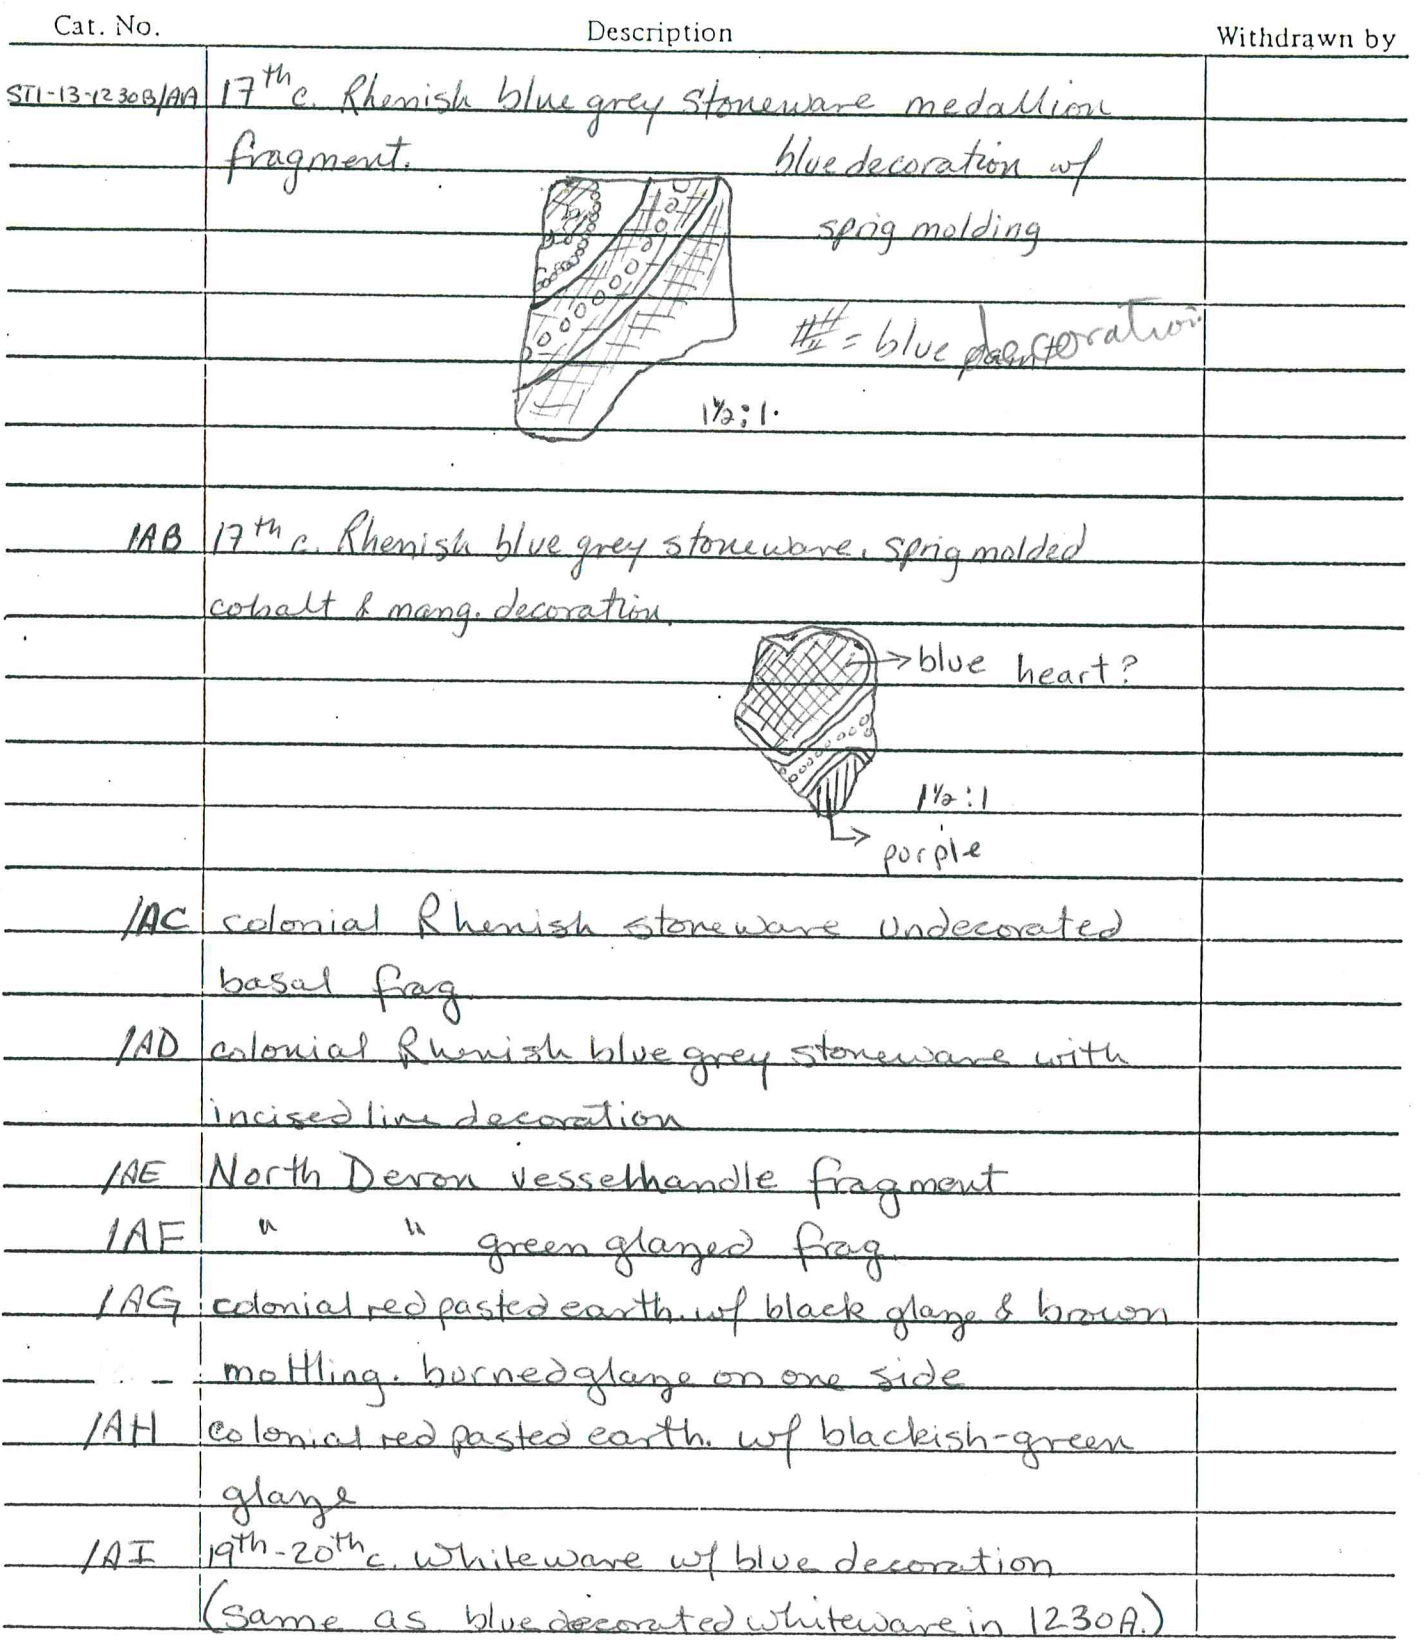 Cat. No. Description Withdrawn by
ST1-13-1230B/AA 17th c. Rhenish blue grey stoneware medallion
fragment. blue decoration w/
sprig molding
# = blue decoration
1½:1.
/AB 17th c. Rhenish blue grey stoneware. sprig molded
cobalt & mang. decoration.
→ blue heart?
1½:1
→ purple
/AC colonial Rhenish stoneware undecorated
basal frag
/AD colonial Rhenish blue grey stoneware with
incised line decoration
/AE North Devon vessel handle fragment
/AF " " green glazed frag
/AG colonial red pasted earth. w/ black glaze & brown
mottling. burned glaze on one side
/AH colonial red pasted earth. w/ blackish-green
glaze
/AI 19th-20th c. whiteware w/ blue decoration
(same as blue decorated whiteware in 1230A.)